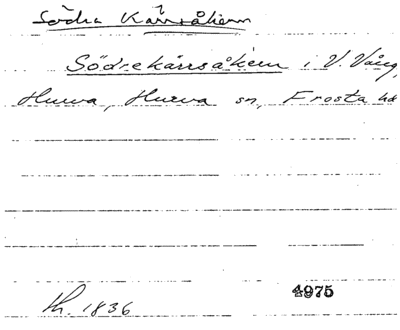 Södra Kärråkern
Södrekärrsåkern i V. Vång,
Hurva, Hurva sn, Frosta hd
4975
Lh. 1836